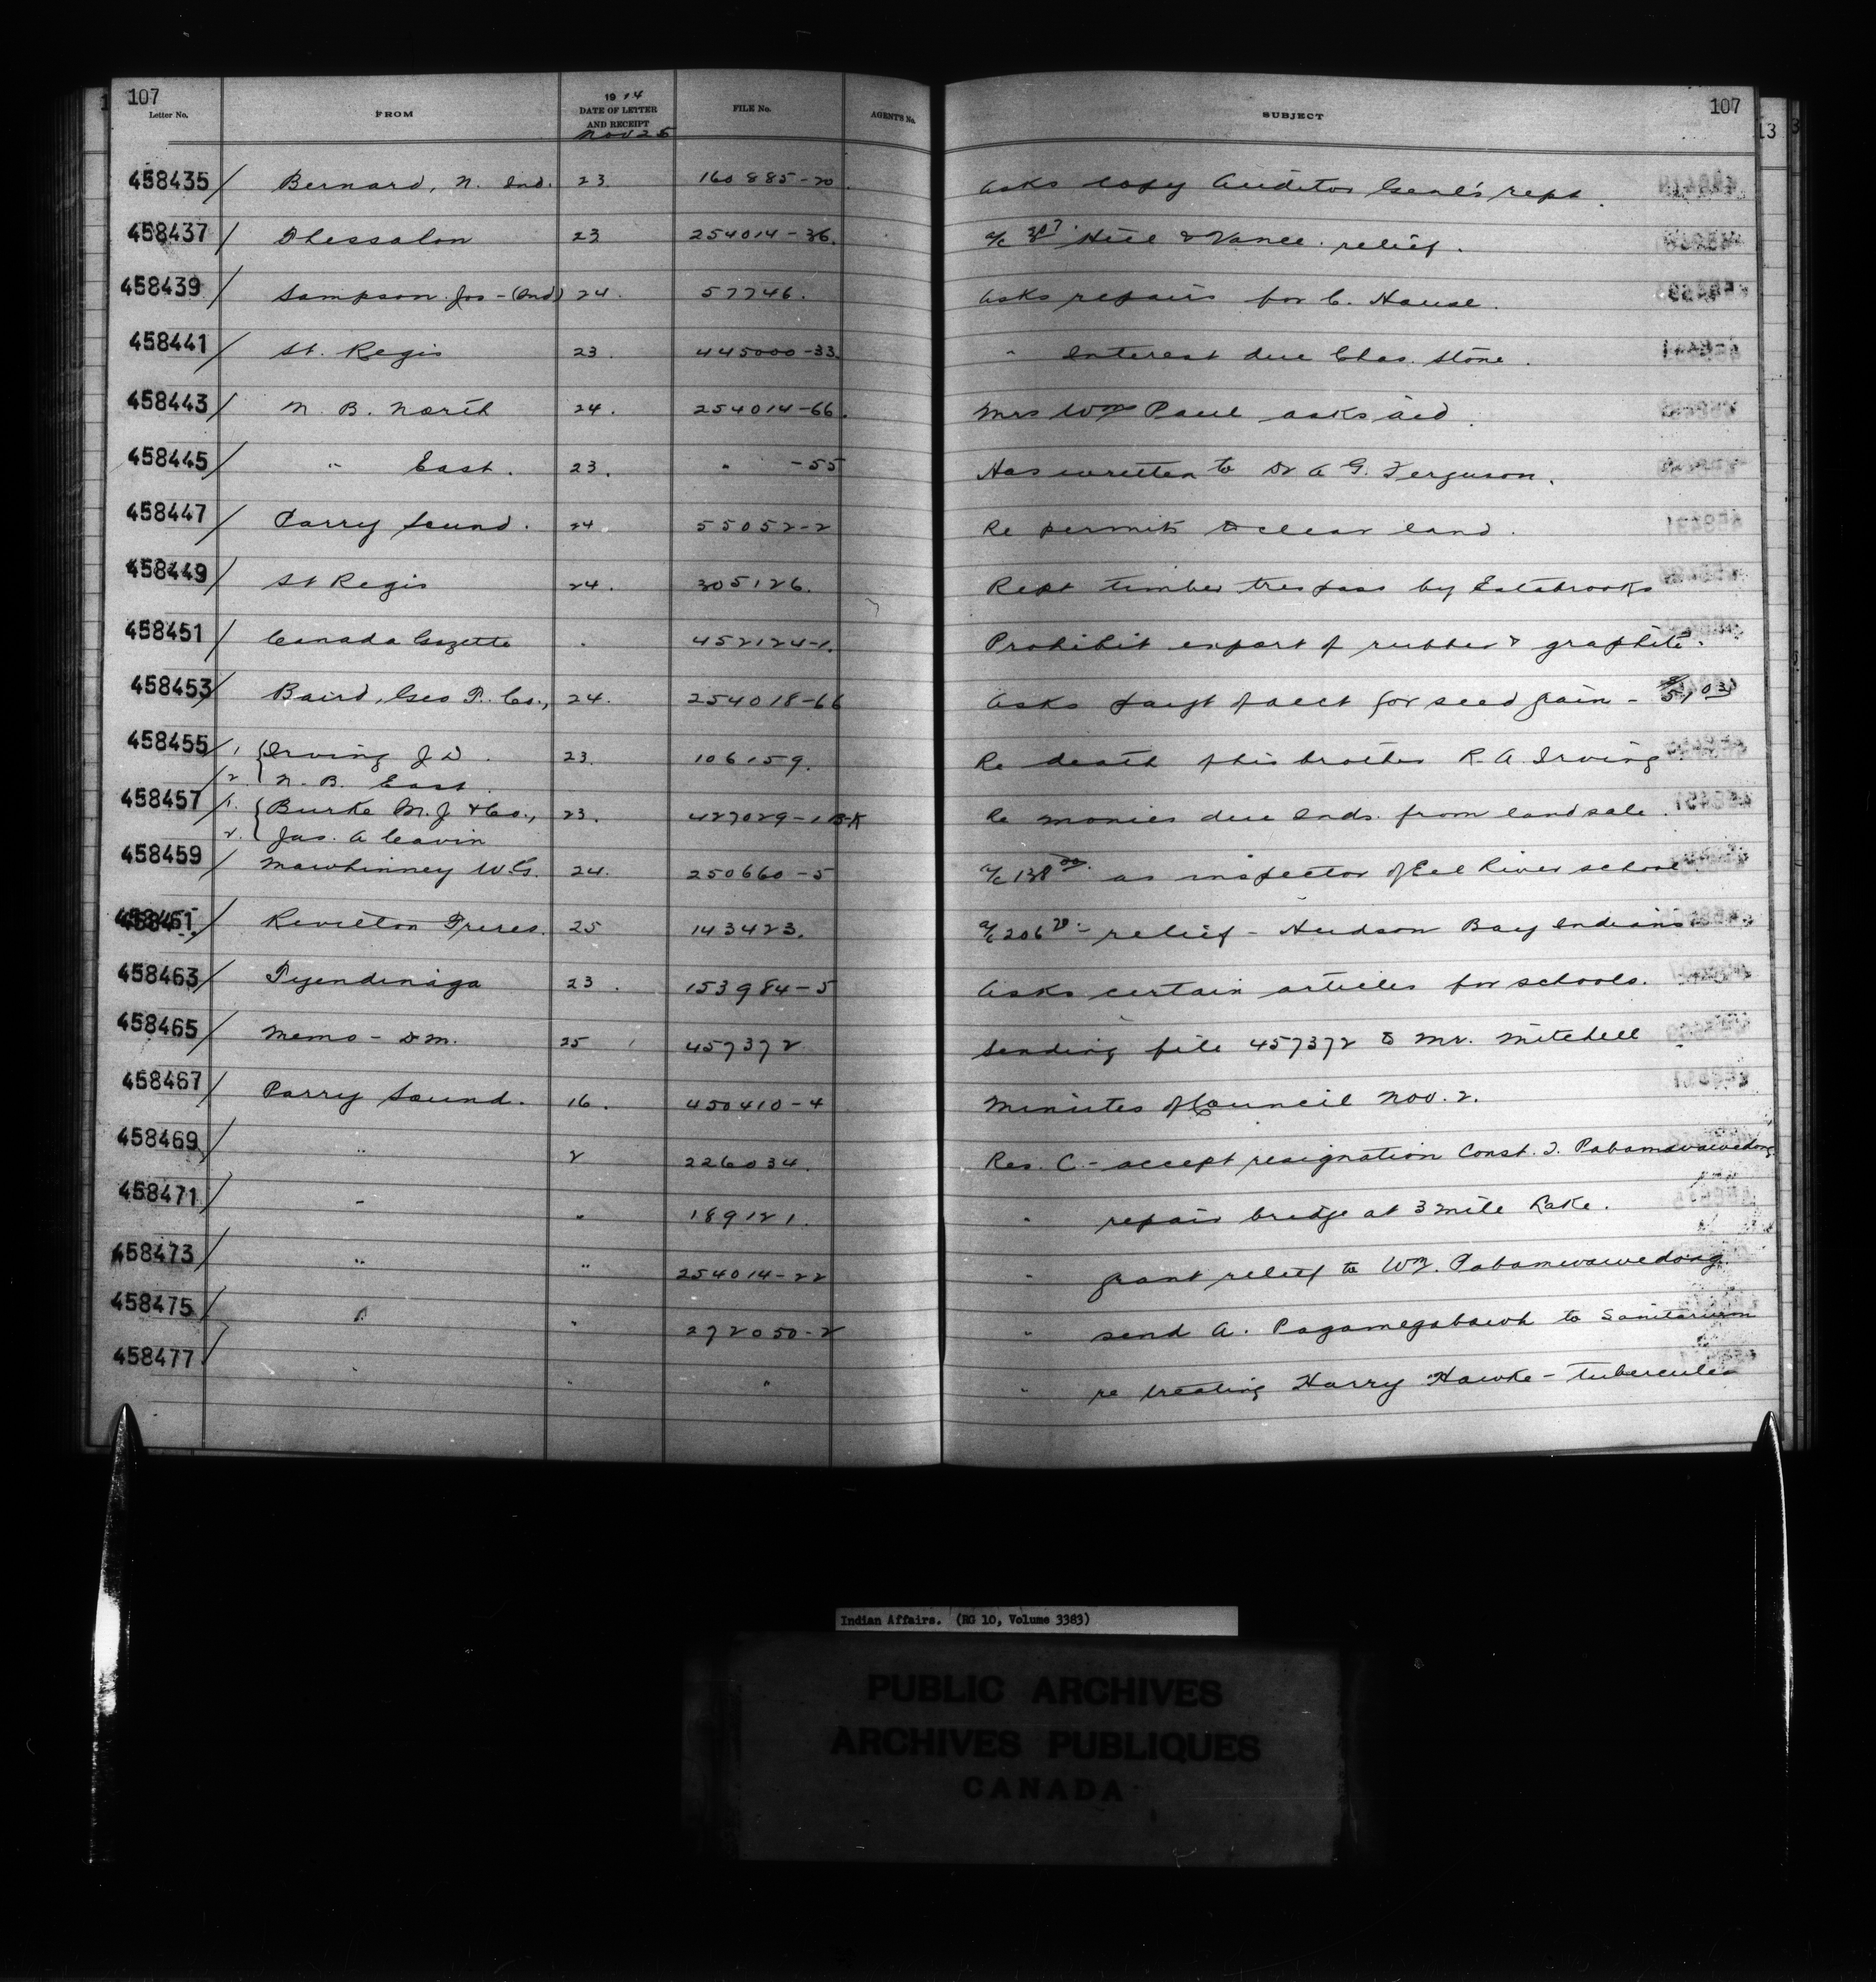 107
107
Letter No. FROM 1914 DATE OF LETTER AND RECEIPT FILE No. AGENT'S No. SUBJECT
Nov 25
458435 / Bernard, N. Ind. 23. 160885-20. Asks copy Auditor Genl's rept.
458437 / Thessalon 23 254014-36. a/c Hill & Vance. relief.
458439 / Sampson Jos - (Ind) 24. 57746. Asks repairs for C. House.
458441 / St. Regis 23. 445000-33. " Interest due Chas. Stone.
458443 / N. B. North 24. 254014-66. Mrs Wm Paul asks aid.
458445 / " East. 23. " -55 Has written to Dr A G. Ferguson.
458447 / Parry Sound. 24. 55052-2 Re permits to clear land.
458449 / St Regis 24. 305126. Rept timber trespass by Estabrooks
458451 / Canada Gazette . 452124-1. Prohibit export of rubber & graphite.
458453 / Baird, Geo T. Co., 24. 254018-66 Asks paayt of acct for seed grain -
458455 / 1. { Irving J D. 23. 106159. Re death of his brother R. A. Irving
2. N. B. East.
458457 / 1. { Burke M. J & Co., 23. 427029-1 B-K Re monies due Inds. from land sale.
2. Jas. A Cavin
458459 / Mawhinney W. G. 24. 250660-5 a/c 138 00 as inspector of Eel River school.
458461 / Revillon Freres. 25 143423. a/c 206 20 - relief - Hudson Bay Indians
458463 / Tyendinaga 23. 153984-5 Asks certain articles for schools.
458465 / Memo - DM. 25 457372 Sending file 457372 to Mr. Mitchell
458467 / Parry Sound. 16. 450410-4 Minutes of Council Nov. 2.
458469 / " 2 226034. Res. C. - accept resignation Const. I. Pabamawawedong
458471 / " " 189121. " repair bridge at 3 mile Lake.
458473 / " " 254014-22 " grant relief to Wm. Pabamwawedong
458475 / " " 272050-2 " send A. Pagamegabawh to Sanitarium
458477 / " " " " re treating Harry Hawke - tubercules
Indian Affairs. (RG 10, Volume 3383)
PUBLIC ARCHIVES
ARCHIVES PUBLIQUES
CANADA